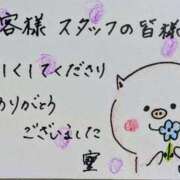 客様 スタッフの皆様
しくしてくださり
ありがとう
ございました